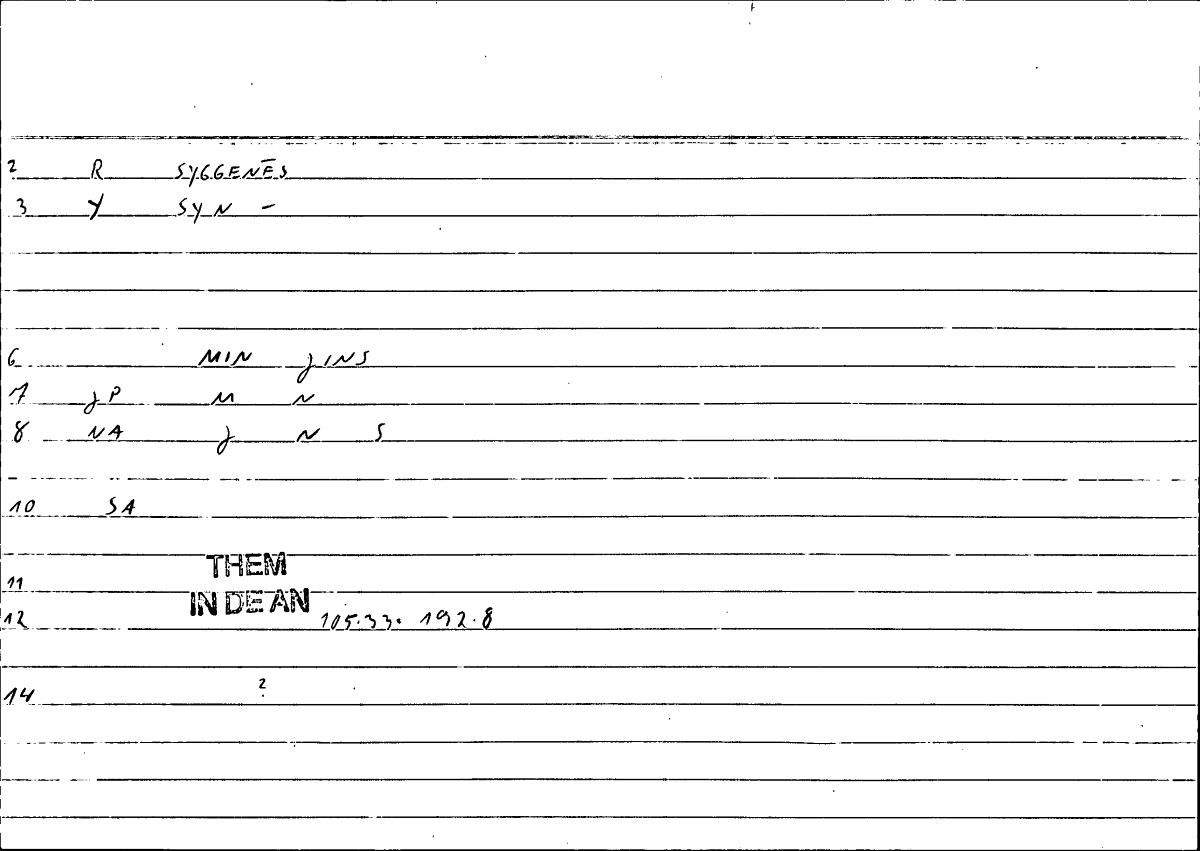 2 R SYGGENĒS
3 Y SYN -
6 MIN JINS
7 JP M N
8 NA J N S
10 SA
THEM
11
IN DE AN
12 105.33. 192.8
14 2